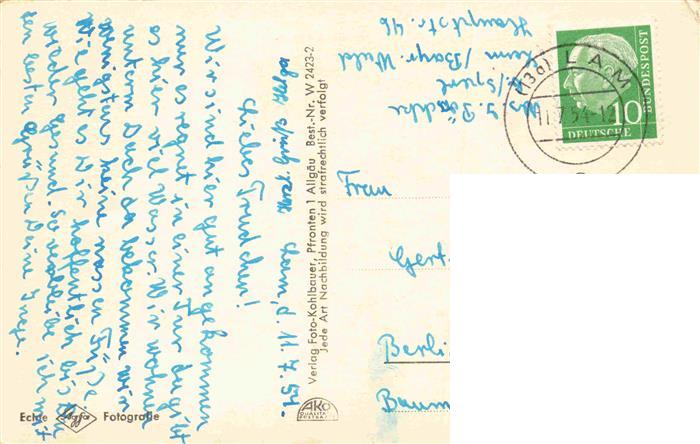 Lam, d. 11.7.54.
Herzl. Grüße Helga
Liebes Trudchen!
Wir sind hier gut angekommen
nur es regnet in einer Tour da gibt
es hier viel Wasser. Wir wohnen
unterm Dach da bekommen wir
wenigstens keine nassen Füße.
Wie geht es Dir hoffentlich bist du
wieder gesund. So verbleibe ich mit
den besten Grüßen Deine Inge.
Echte Agfa Fotografie
Verlag Foto-Kohlbauer, Pfronten 1 Allgäu Best.-Nr. W 2423-2
Jede Art Nachbildung wird strafrechtlich verfolgt
AKO
QUALITÄTS
POSTKARTE
Abs. I.
Lam / Bayr. Wald
Hauptstr. 46
(13a) LAM
11.7.54-12
10
DEUTSCHE
BUNDESPOST
Frau
Gert
Berli
Baum